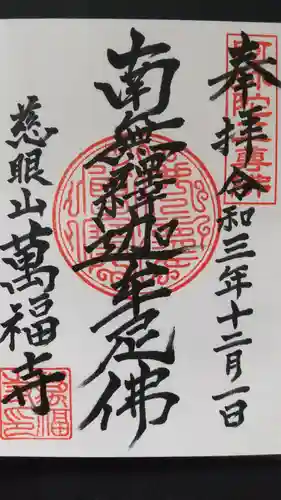 奉拝 令和三年十二月一日
南無釋迦牟尼佛
慈眼山 萬福寺